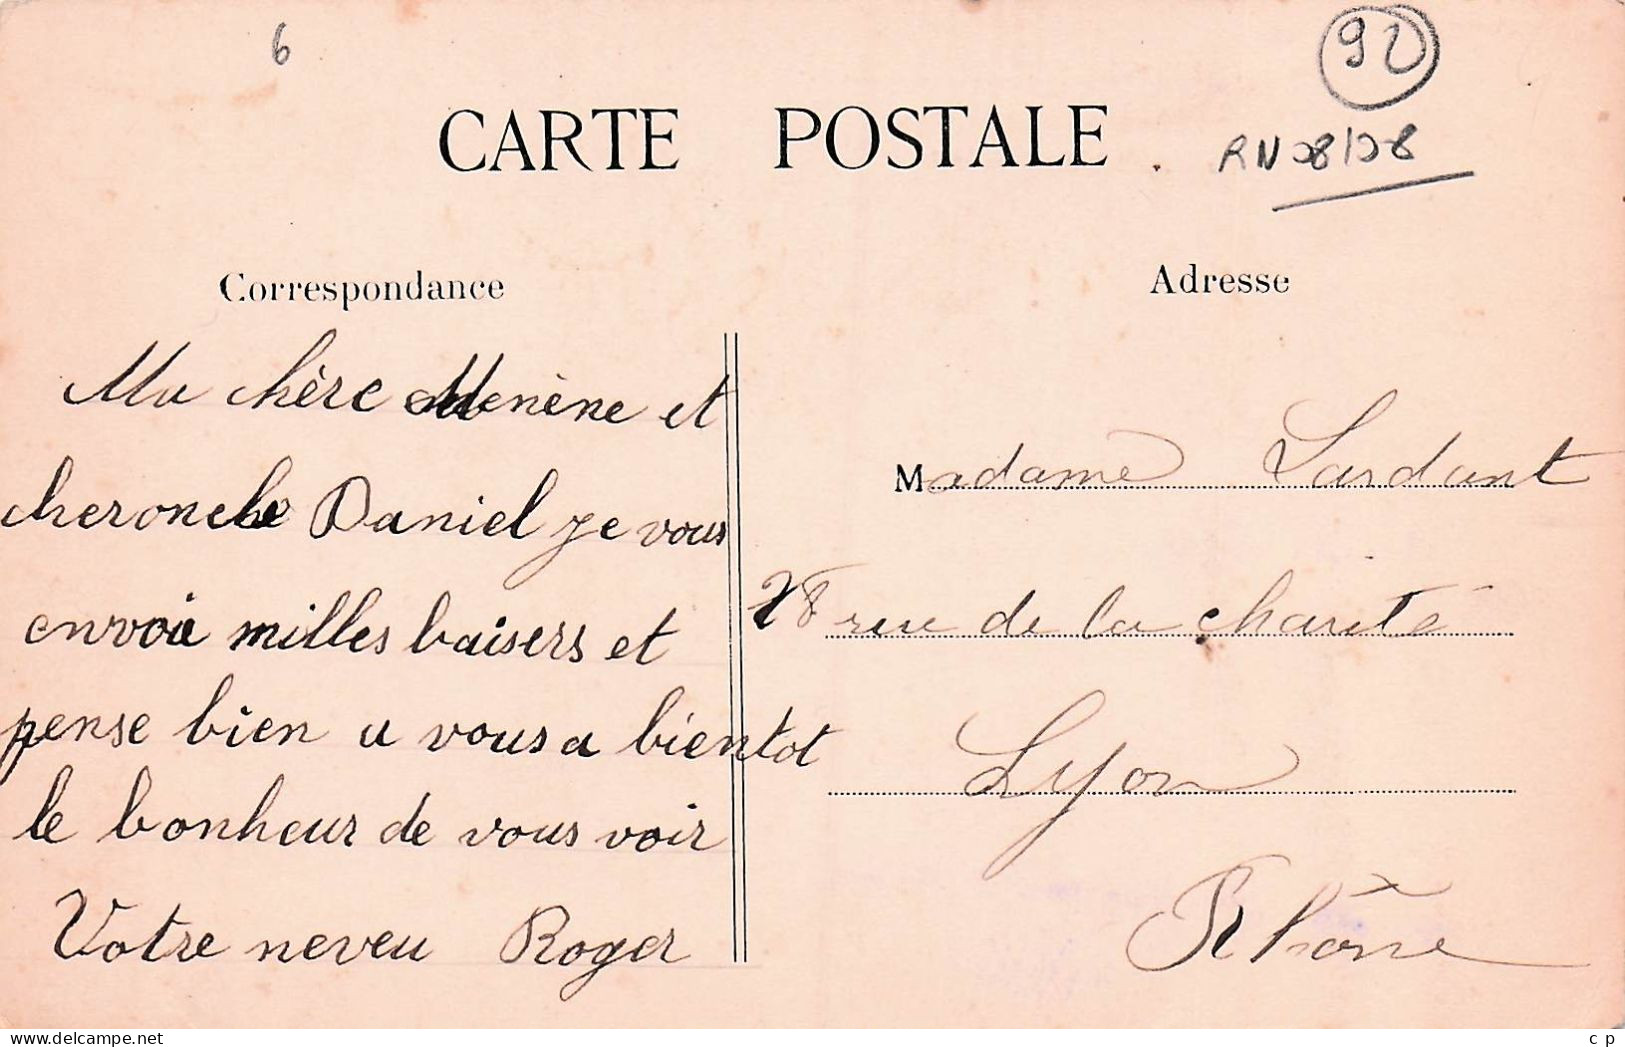 6
92
CARTE POSTALE
RN 28/28
Correspondance
Adresse
Ma chère Menène et
cheronche Daniel je vous
envoie milles baisers et
pense bien a vous a bientot
le bonheur de vous voir
Votre neveu Roger
Madame Lardant
28 rue de la charité
Lyon
Rhône
www.delcampe.net
cp